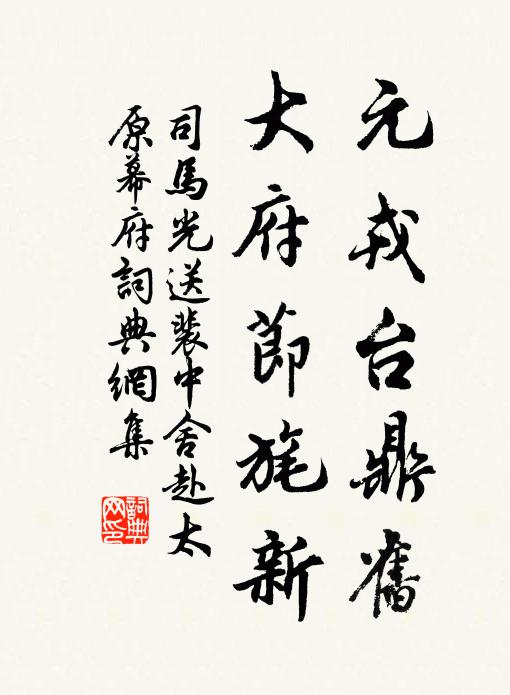 元戎台鼎舊
大府節旄新
司馬光送裴中舍赴太
原幕府詞典網集
詞典網印